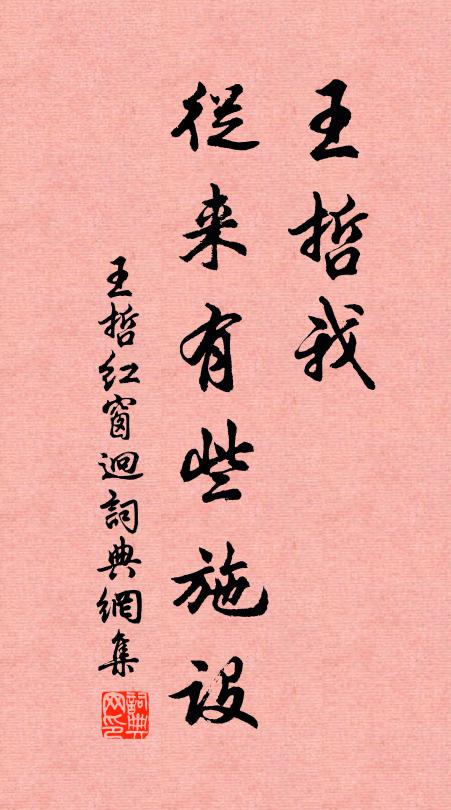 王哲我
從来有些施設
王哲红窗迥詞典網集
詞典网印